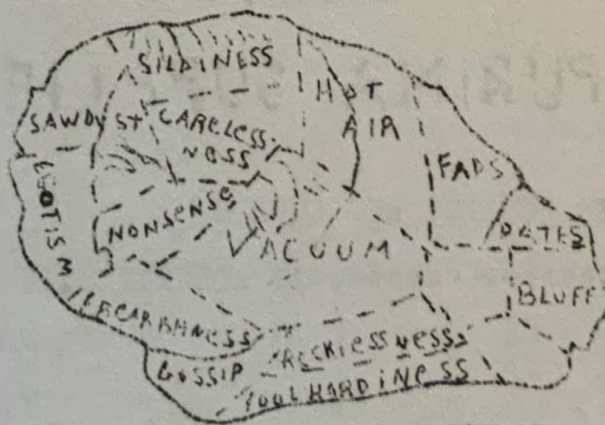 SILLINESS
HOT
AIR
SAWDUST
CARELESS-
NESS
FADS
EGOTISM
NONSENSE
VACUUM
DATES
BLUFF
RECKLESSNESS
GOSSIP
FOOLHARDINESS